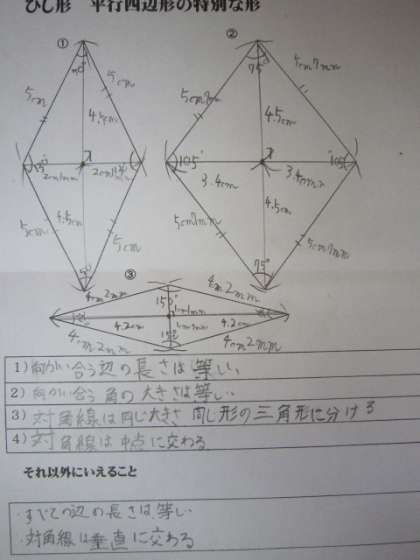 ひし形 平行四辺形の特別な形
① ②
75°
5cm 5cm
5cm7mm
4.5cm
105° 105°
3.4cm 3.4cm
4.5cm 4.5cm
5cm 5cm
5cm7mm 5cm7mm
75°
③
4cm2mm 4cm2mm
150°
4.2cm 4.2cm
4cm2mm 4cm2mm
1）向かい合う辺の長さは等しい
2）向かい合う角の大きさは等しい
3）対角線は同じ大きさ 同じ形の三角形に分ける
4）対角線は中点に交わる
それ以外にいえること
・すべての辺の長さは等しい
・対角線は垂直に交わる